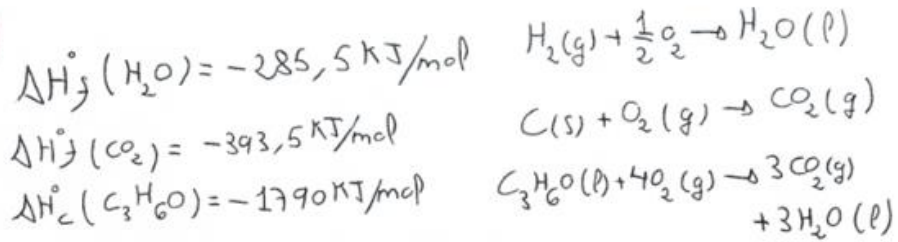 ΔH°f (H₂O) = -285,5 KJ/mol
ΔH°f (CO₂) = -393,5 KJ/mol
ΔH°c (C₃H₆O) = -1790 KJ/mol
H₂(g) + 1/2 O₂ → H₂O (l)
C(s) + O₂ (g) → CO₂ (g)
C₃H₆O (l) + 4O₂ (g) → 3 CO₂ (g)
+ 3 H₂O (l)